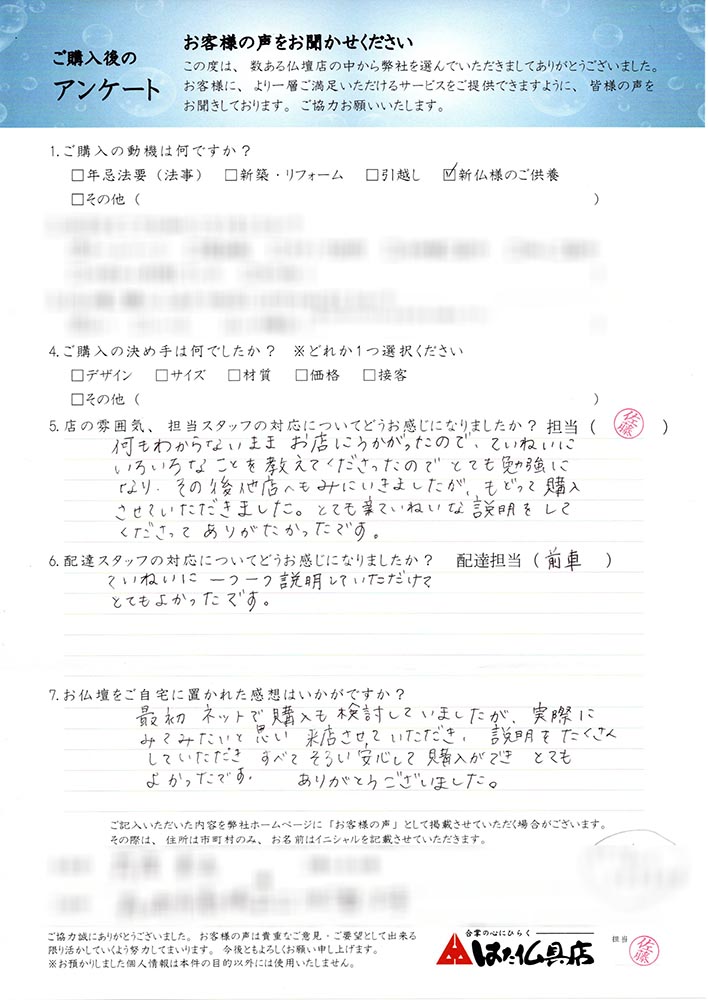 ご購入後の
アンケート
お客様の声をお聞かせください
この度は、数ある仏壇店の中から弊社を選んでいただきましてありがとうございました。
お客様に、より一層ご満足いただけるサービスをご提供できますように、皆様の声を
お聞きしております。ご協力お願いいたします。
1.ご購入の動機は何ですか？
□年忌法要（法事） □新築・リフォーム □引越し ☑新仏様のご供養
□その他（ ）
4.ご購入の決め手は何でしたか？ ※どれか1つ選択ください
□デザイン □サイズ □材質 □価格 □接客
□その他（ ）
5.店の雰囲気、担当スタッフの対応についてどうお感じになりましたか？ 担当（ 佐藤 ）
何もわからないまま お店にうかがったので、ていねいに
いろいろなことを教えてくださったので とても勉強に
なり、その後他店へもみにいきましたが、もどって購入
させていただきました。とても ていねいな説明をして
くださって ありがたかったです。
6.配達スタッフの対応についてどうお感じになりましたか？ 配達担当（ 前車 ）
ていねいに 一つ一つ説明していただけて
とてもよかったです。
7.お仏壇をご自宅に置かれた感想はいかがですか？
最初 ネットで購入も検討していましたが、実際に
みてみたいと思い 来店させていただき、説明をたくさん
していただき すべてそろい安心して購入ができ とても
よかったです。 ありがとうございました。
ご記入いただいた内容を弊社ホームページに「お客様の声」として掲載させていただく場合がございます。
その際は、住所は市町村のみ、お名前はイニシャルを記載させていただきます。
ご協力誠にありがとうございました。お客様の声は貴重なご意見・ご要望として出来る
限り活かしていくよう努力してまいります。今後ともよろしくお願い申し上げます。
※お預かりしました個人情報は本件の目的以外には使用いたしません。
合掌の心にひらく
はた仏具店
担当 佐藤